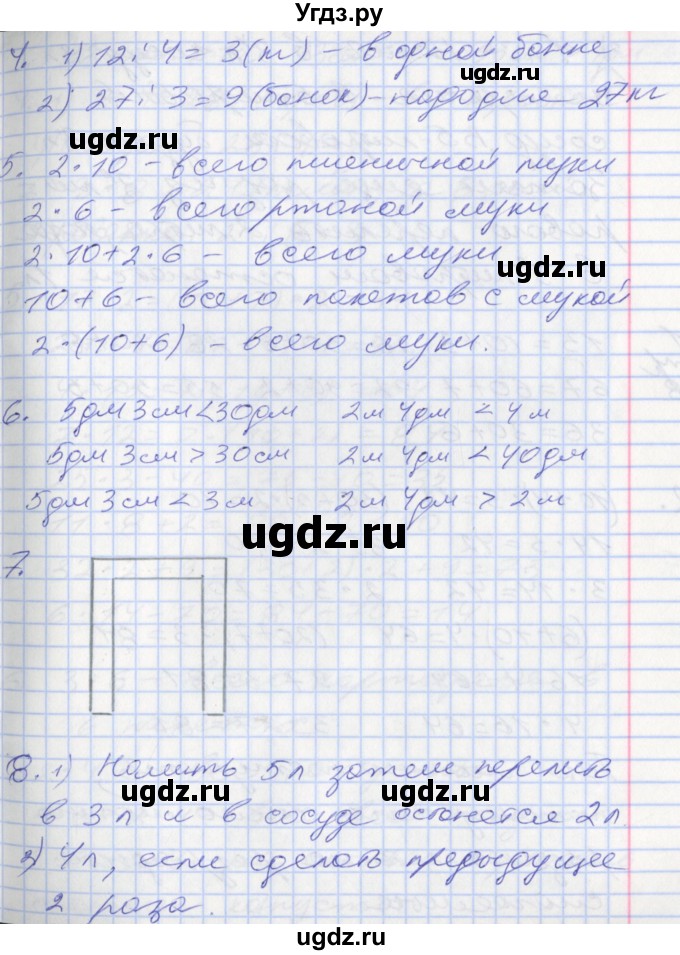 Угдз.ру
4. 1) 12 : 4 = 3 (кг) – в одной банке
ugdz.ru
2) 27 : 3 = 9 (банок) – надо для 27 кг
ugdz.ru
5. 2 · 10 – всего пшеничной муки
ugdz.ru
2 · 6 – всего ржаной муки
2 · 10 + 2 · 6 – всего муки
ugdz.ru
10 + 6 – всего пакетов с мукой
2 · (10 + 6) – всего муки.
ugdz.ru
6. 5дм 3см < 30дм 2м 4дм < 4м
5дм 3см > 30см 2м 4дм < 40дм
5дм 3см < 3м 2м 4дм > 2м
ugdz.ru
7.
ugdz.ru
8. 1) Налить 5л затем перелить
ugdz.ru
в 3л и в сосуде останется 2л.
ugdz.ru
2) 4л, если сделать предыдущее
2 раза.
ugdz.ru
ugdz.ru